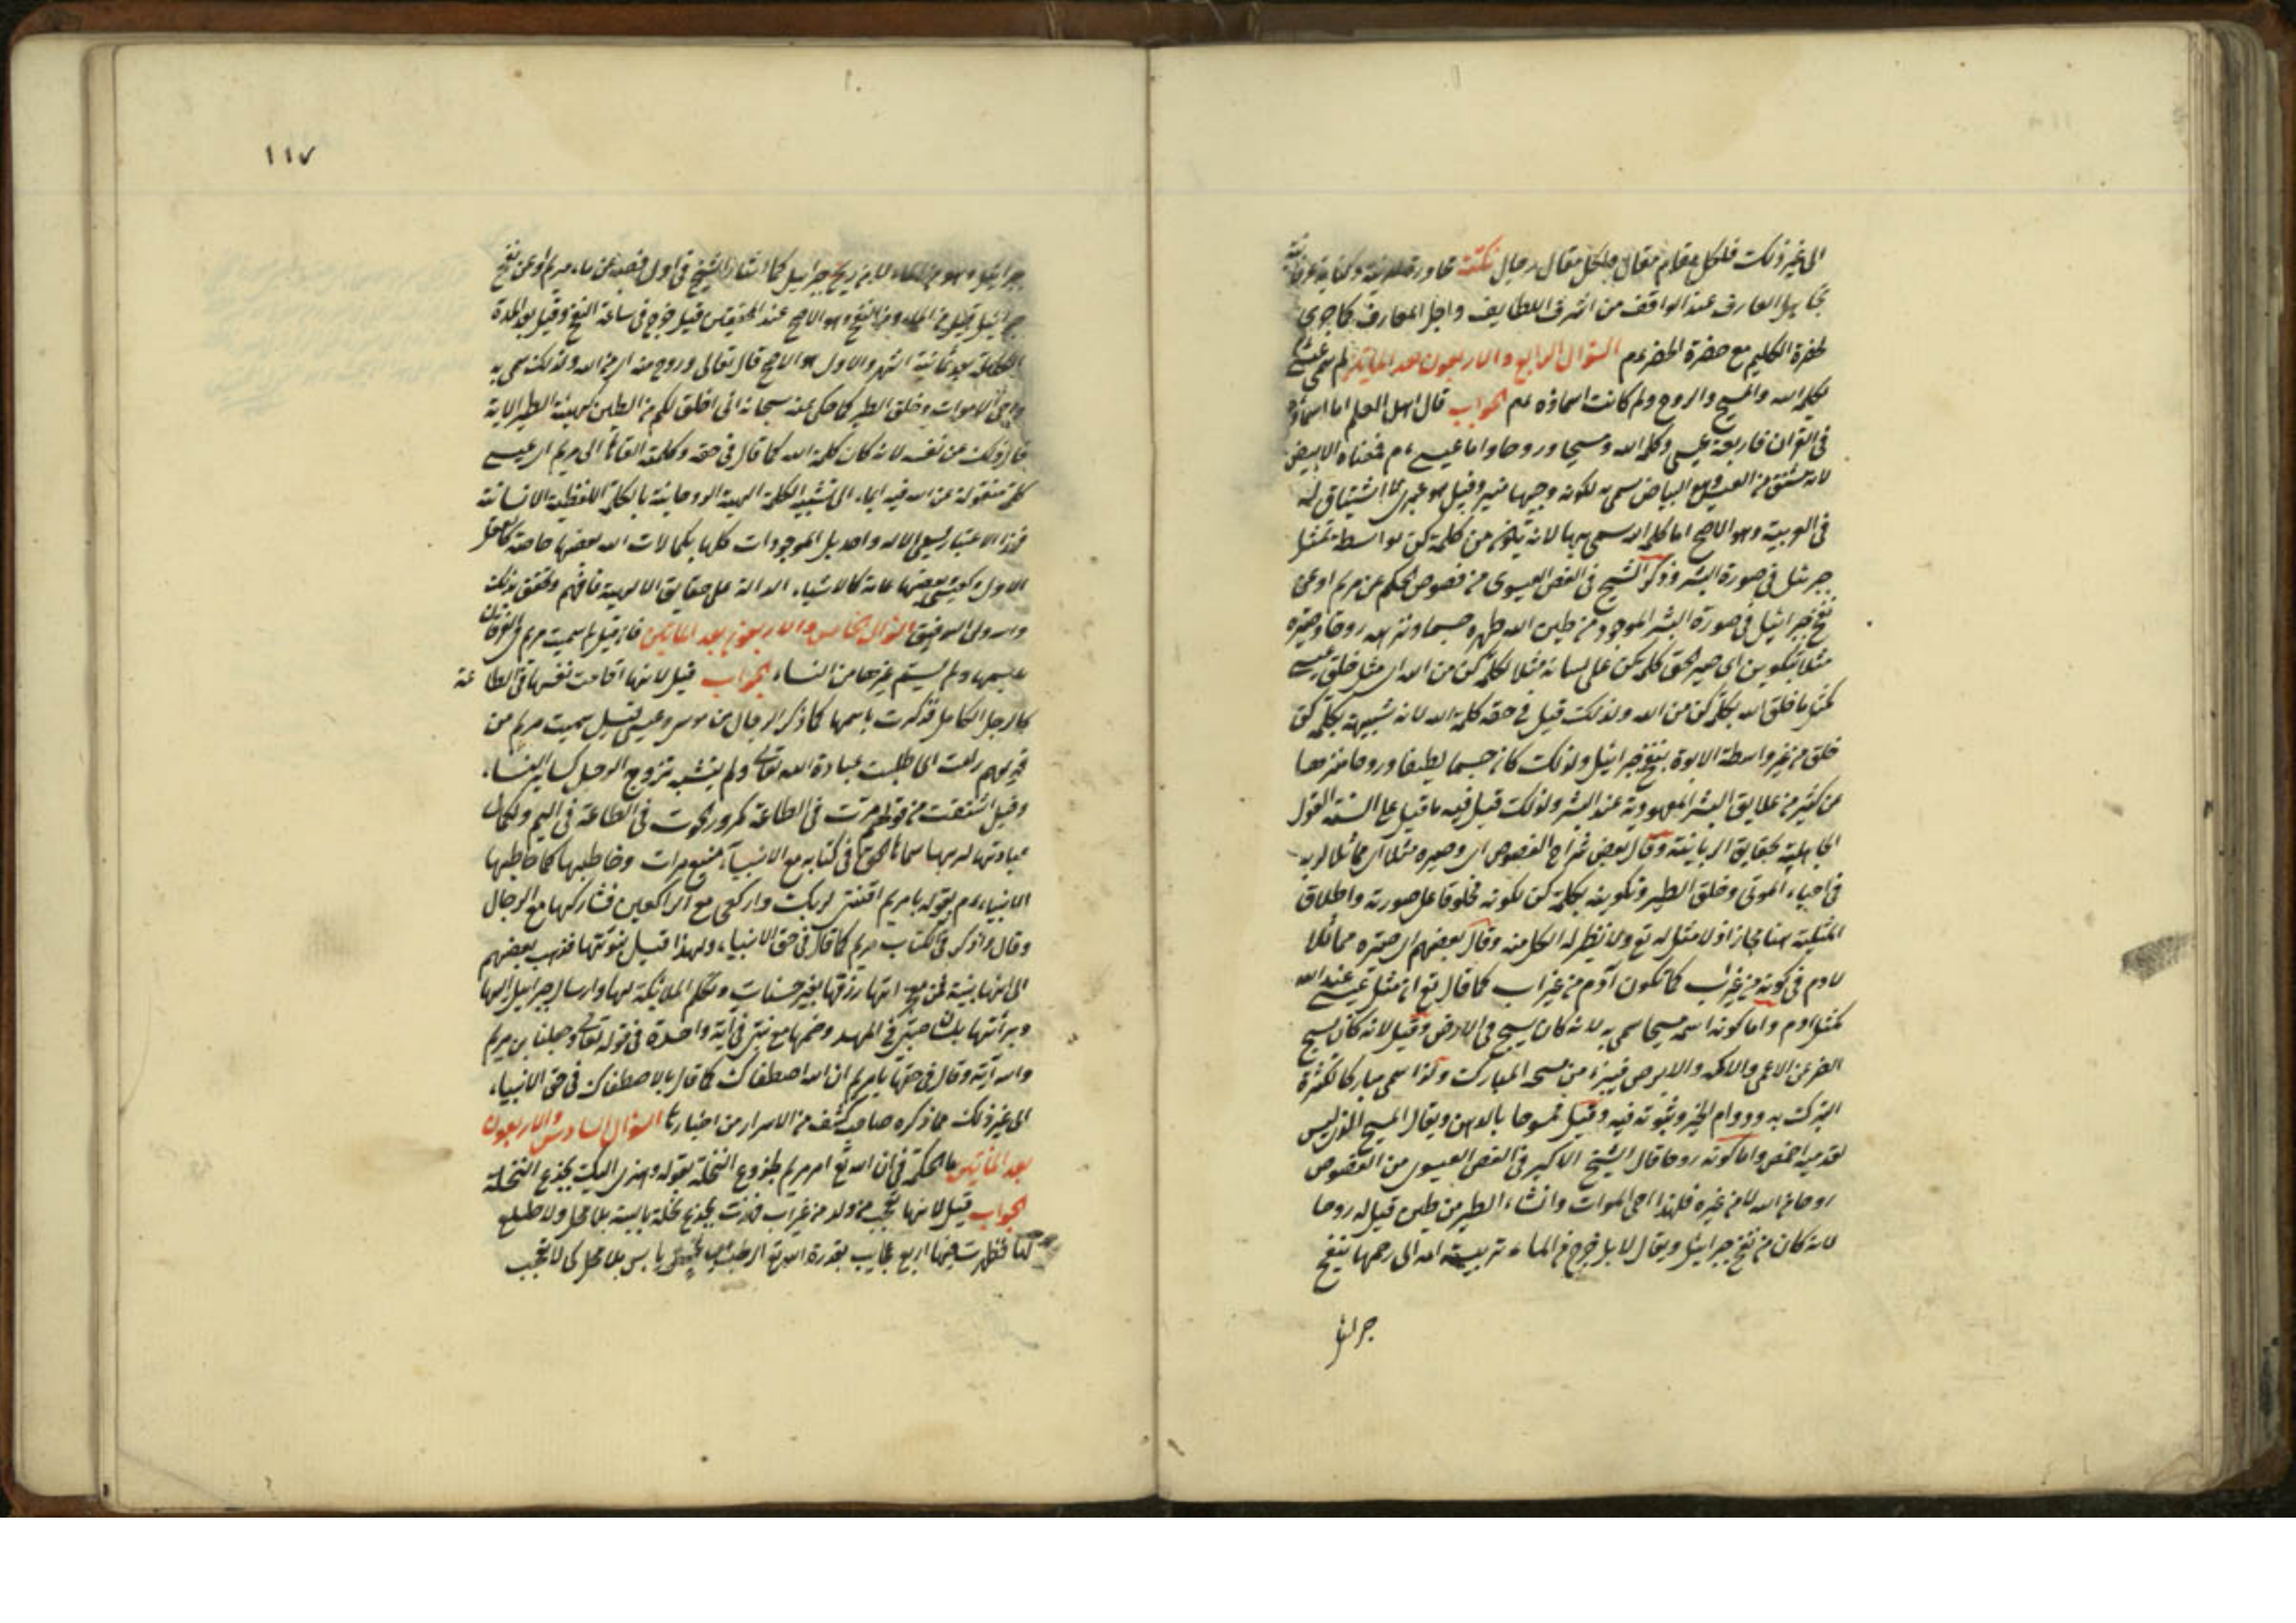 الى غير ذلك فلكل مقام مقال ولكل مقال رجال نكتة
تجاهل العارف عند الواقف من اشرف اللطايف واجل المعارف كما جرى
لحضرة الكليم مع حضرة الخضر عم السؤال الرابع والاربعون بعد المايتين لم سمى عيسى
بكلمة الله والمسيح والروح ولم كانت اسماؤه عم الجواب قال اهل العلم اما اسماؤه
فى القران فاربعة عيسى وكلمة الله ومسيحا وروحا واما عيسى عم فمعناه الابيض
لانه مشتق من العيس وهو البياض سمى به لكونه وجيها منير وقيل هو عبرى لا اشتياق له
فى العربية وهو الاصح اما كلمة الله سمى بها لانه تكون من كلمة كن بواسطة تمثل
جبرئيل فى صورة البشر وذكر الشيخ فى الفص العيسوى من فصوص الحكم عن مريم او عن
نفخ جبرائيل فى صورة البشر الموجود من طين الله طهره جسما ونزهه روحا وصيره
مثلا بتكوين اى صير الحق كلمة كن على لسانه مثلا لكلمة كن من الله اى مثل خلق عيسى
كمثل ما خلق الله بكلمة كن من الله ولذلك قيل فى حقه كلمة الله لانه شبيهة بكلمة كن
خلق من غير واسطة الابوة بنفخ جبرائيل ولذلك كان جسما لطيفا وروحا منزها
عن كثير من علايق البشر المعهودية عند البشر ولذلك قيل فيه ما قيل على السنة القول
الجاهلية بحقايق الربانية وقال بعض شراح الفصوص اى وصيره مثلا اى مماثلا لربه
فى احياء الموتى وخلق الطير وتكوينه بكلمة كن لكونه مخلوقا على صورته واطلاق
المثلية هنا مجازا اذ لا مثل له تع ولا نظير له الكل منه وقال بعضهم اى صيره مماثلا
لادم فى كونه من غير اب كما تكون آدم من غير اب كما قال تع ان مثل عيسى عند الله
كمثل ادم واما كونه اسمه مسيحا سمى به لانه كان يسيح فى الارض وقيل لانه كان يمسح
الضر عن الاعمى والاكمه والابرص فيبرء من مسحه المبارك وكذا سمى مباركا لكثرة
البركت به ودوام الخير وثبوته فيه وقيل ممسوحا بالدهن ويقال المسيح الذى ليس
لقدميه اخمص واما كونه روحا قال الشيخ الاكبر فى الفص العيسوى من الفصوص
روحا من الله لا من غيره فلهذا احى الموات وانشاء الطير من طين قيل له روحا
لانه كان من نفخ جبرائيل ويقال لا بل خرج من الماء تربيته امه الى رحمها بنفخ
جبرائيل
١١٧
جبرائيل وهو من الماء لا من ريح جبرائيل كما اشار الشيخ فى اول فصه عن ماء مريم او عن نفخ
جبرائيل وقيل من الماء ومن النفخ وهو الاصح عند المحققين قيل خرج فى ساعة النفخ وقيل بعد المدة
بعد ثمانية اشهر والاول هو الاصح قال تعالى وروح منه اى من الله ولذلك سمى به
واحى الاموات وخلق الطير كما حكى عنه سبحانه انى اخلق لكم من الطين كهيئة الطير الاية
قال ذلك عن نفسه لانه كان كلمة الله كما قال فى حقه وكلمته القاها الى مريم اى عيسى
كلمة منقولة عن الله فيه ايماء الى تشبيه الكلمة الهية الروحانية بالكلمة اللفظية الانسانية
الموجودات كلها كمالات الله بعضها خاصة كالعقل
الاول وكعيسى وبعضها عامة كالاشياء الدالة على حقايق الالهية فافهم وتحقق بذلك
والله ولى التوفيق السؤال الخامس والاربعون بعد المايتين فان قيل لم سميت مريم فى القرآن
باسمها ولم يسم غيرها من النساء الجواب قيل لانها اقامت نفسها فى الطاعة
كالرجل الكامل فذكرت باسمها كما ذكر الرجال من موسى وعيسى قيل سميت مريم من
قولهم رامت اى طلبت عبادة الله تعالى ولم يشبه تزوج الرجل كسائر النساء
وقيل اشتقت من قولهم مرت فى الطاعة كمرور الحوت فى الطاعة فى اليم ولكمال
عبادتها لربها سماها الحق فى كتابه مع الانبياء سبع مرات وخاطبها كما خاطبها
الانبياء عم بقوله يا مريم اقنتى لربك واركعى مع الراكعين فشاركها مع الرجال
وقال واذكر فى الكتاب مريم كما قال فى حق الانبياء ولهذا قيل بنبوتها فذهب بعضهم
الى انها نبية رزقها بغير حساب وتكلم الملائكة لها وارسال جبرائيل اليها
وبرائتها بلسان صبى فى المهد وضمها مع نبى فى آية واحدة فى قوله تعالى وجعلنا ابن مريم
وامه آية وقال فى حقها يا مريم ان الله اصطفاك كما قال بالاصطفاك فى حق الانبياء
الى غير ذلك مما ذكره صاحب كشف من الاسرار من اخبارها السؤال السادس والاربعون
بعد المأتين ما الحكمة فى ان الله تع امر مريم بهز جذع النخلة بقوله وهزى اليك بجذع النخلة
الجواب قيل لانها تعجب من ولد من غير اب فهزت بجذع نخلة يابسة بلا فحل ولا طلع
فظهرت فيها اربع عجايب بقدرة الله تع الرطب من خشب يابس بلا فحل كى لا تعجب